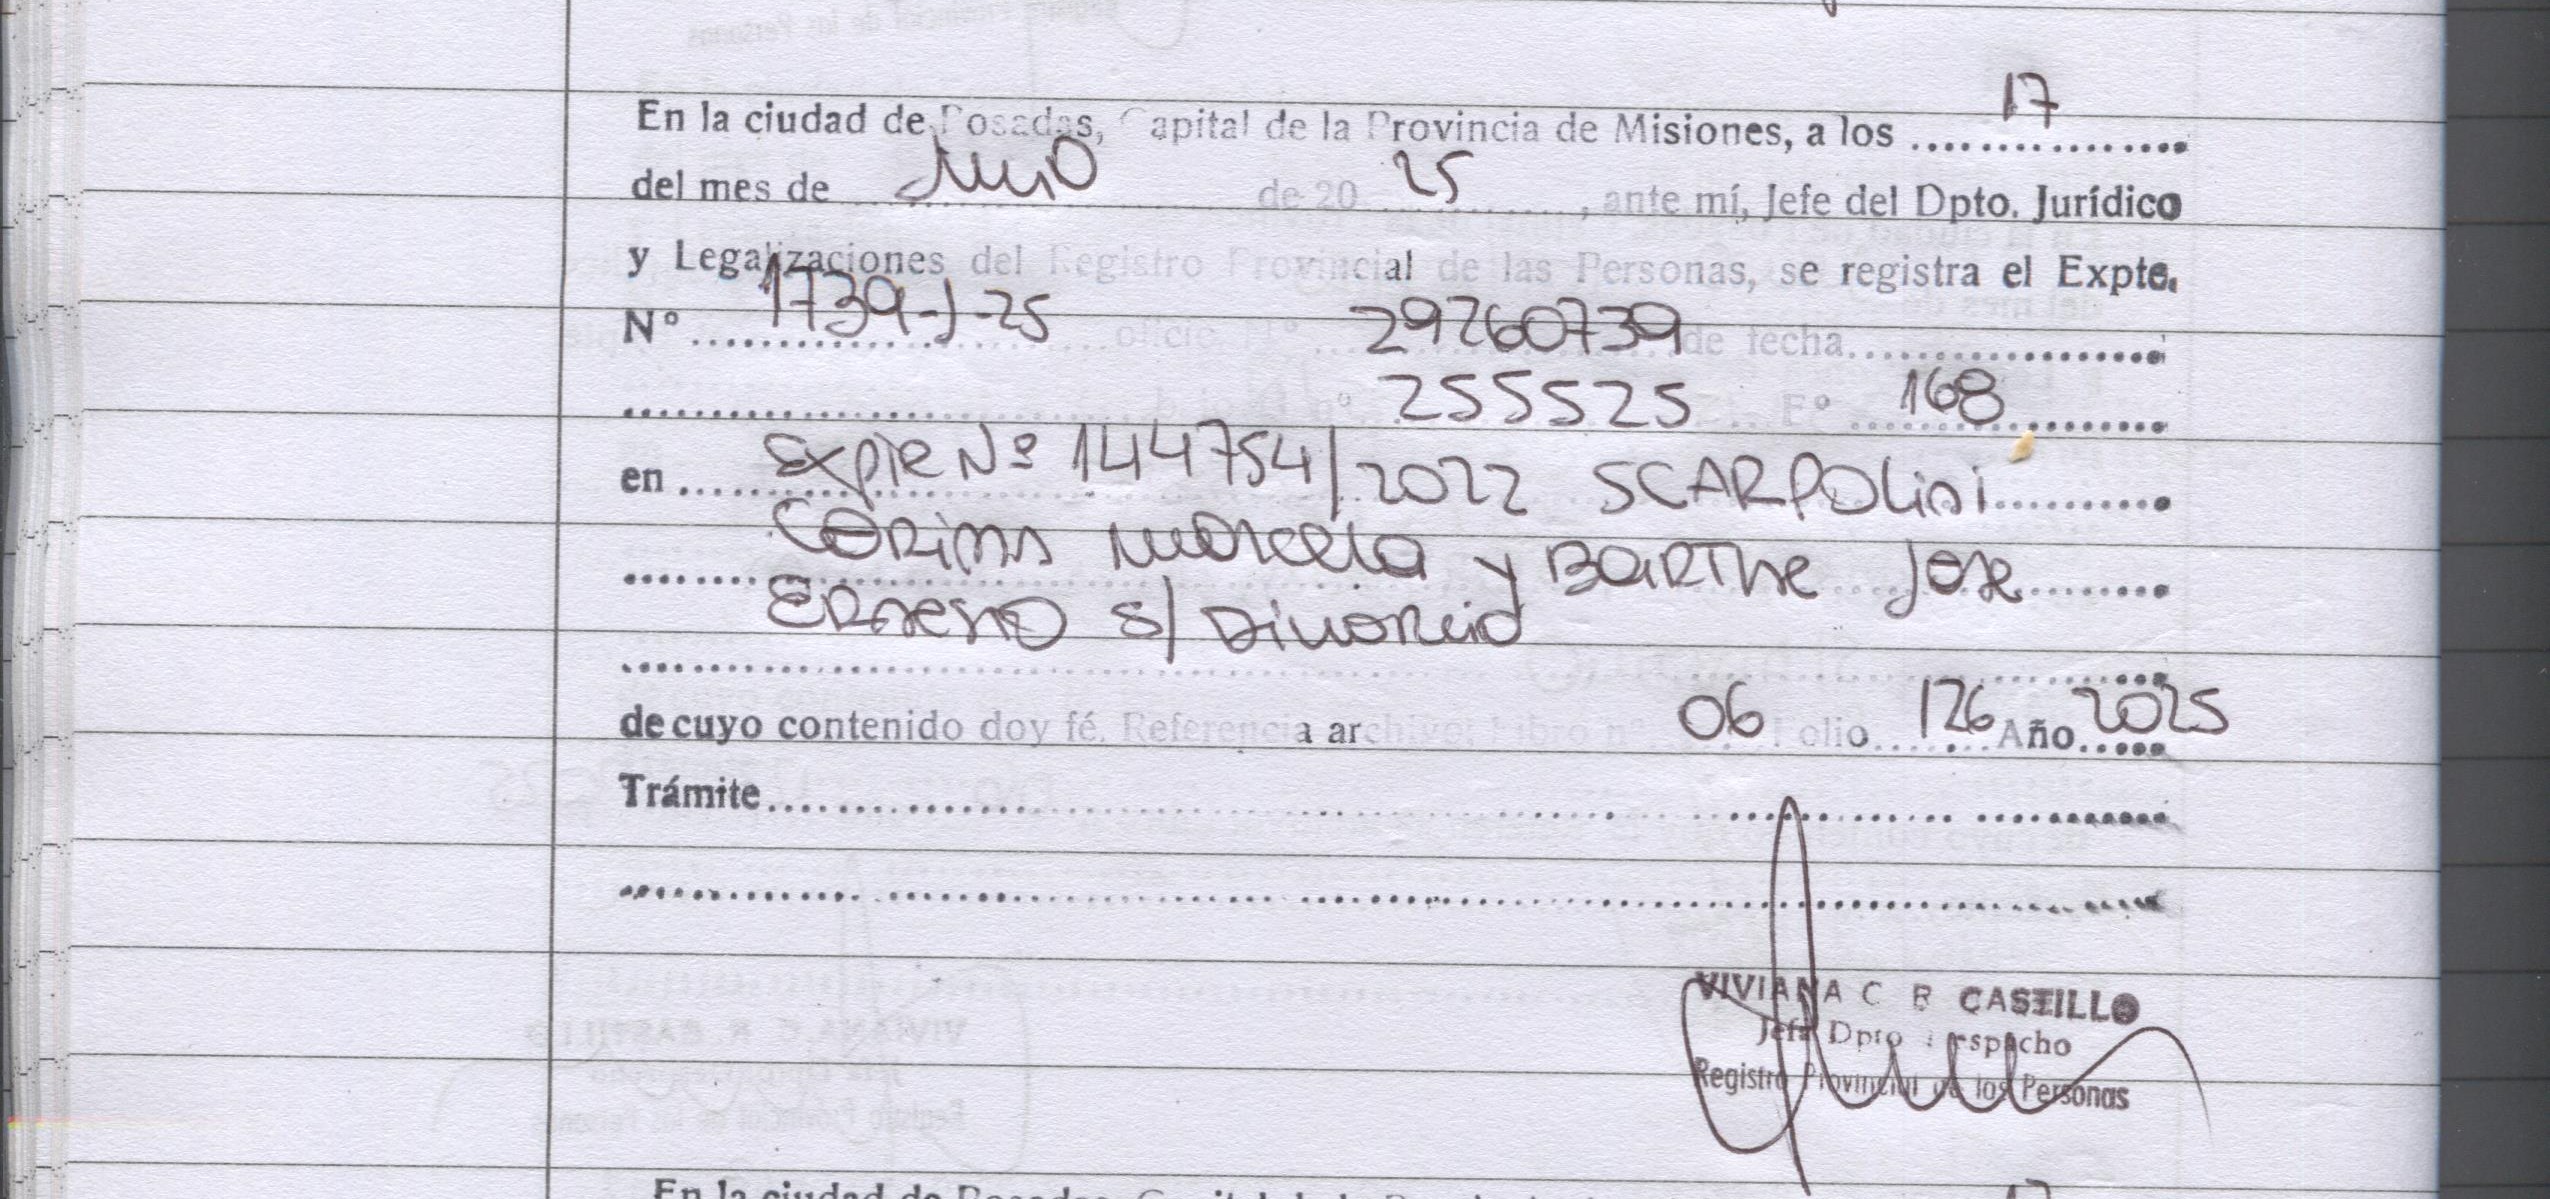 En la ciudad de Posadas, Capital de la Provincia de Misiones, a los 17
del mes de Junio de 20 25, ante mí, Jefe del Dpto. Jurídico
y Legalizaciones del Registro Provincial de las Personas, se registra el Expte.
Nº 1739-J-25 oficio Nº 29260739 de fecha
nº 255525 Fº 168
en Expte Nº 144754/2022 SCARPOLini
CORinA Marcela y BARThe Jose
ERnesto s/ Divorcio
de cuyo contenido doy fé. Referencia archivo: Libro nº 06 Folio 126 Año 2025
Trámite
VIVIANA C R CASTILLO
Jefa Dpto Despacho
Registro Provincial de los Personas
En la ciudad de Posadas, Capital de la